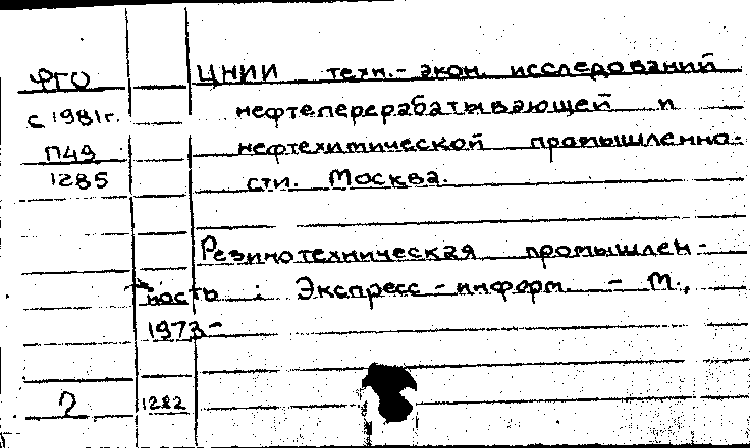 ФГО ЦНИИ техн.-экон. исследований
с 1981г. нефтеперерабатывающей и
П49 нефтехимической промышленно-
1285 сти. Москва.
Резинотехническая промышлен-
ность : Экспресс-информ. - М.,
1973-
1282